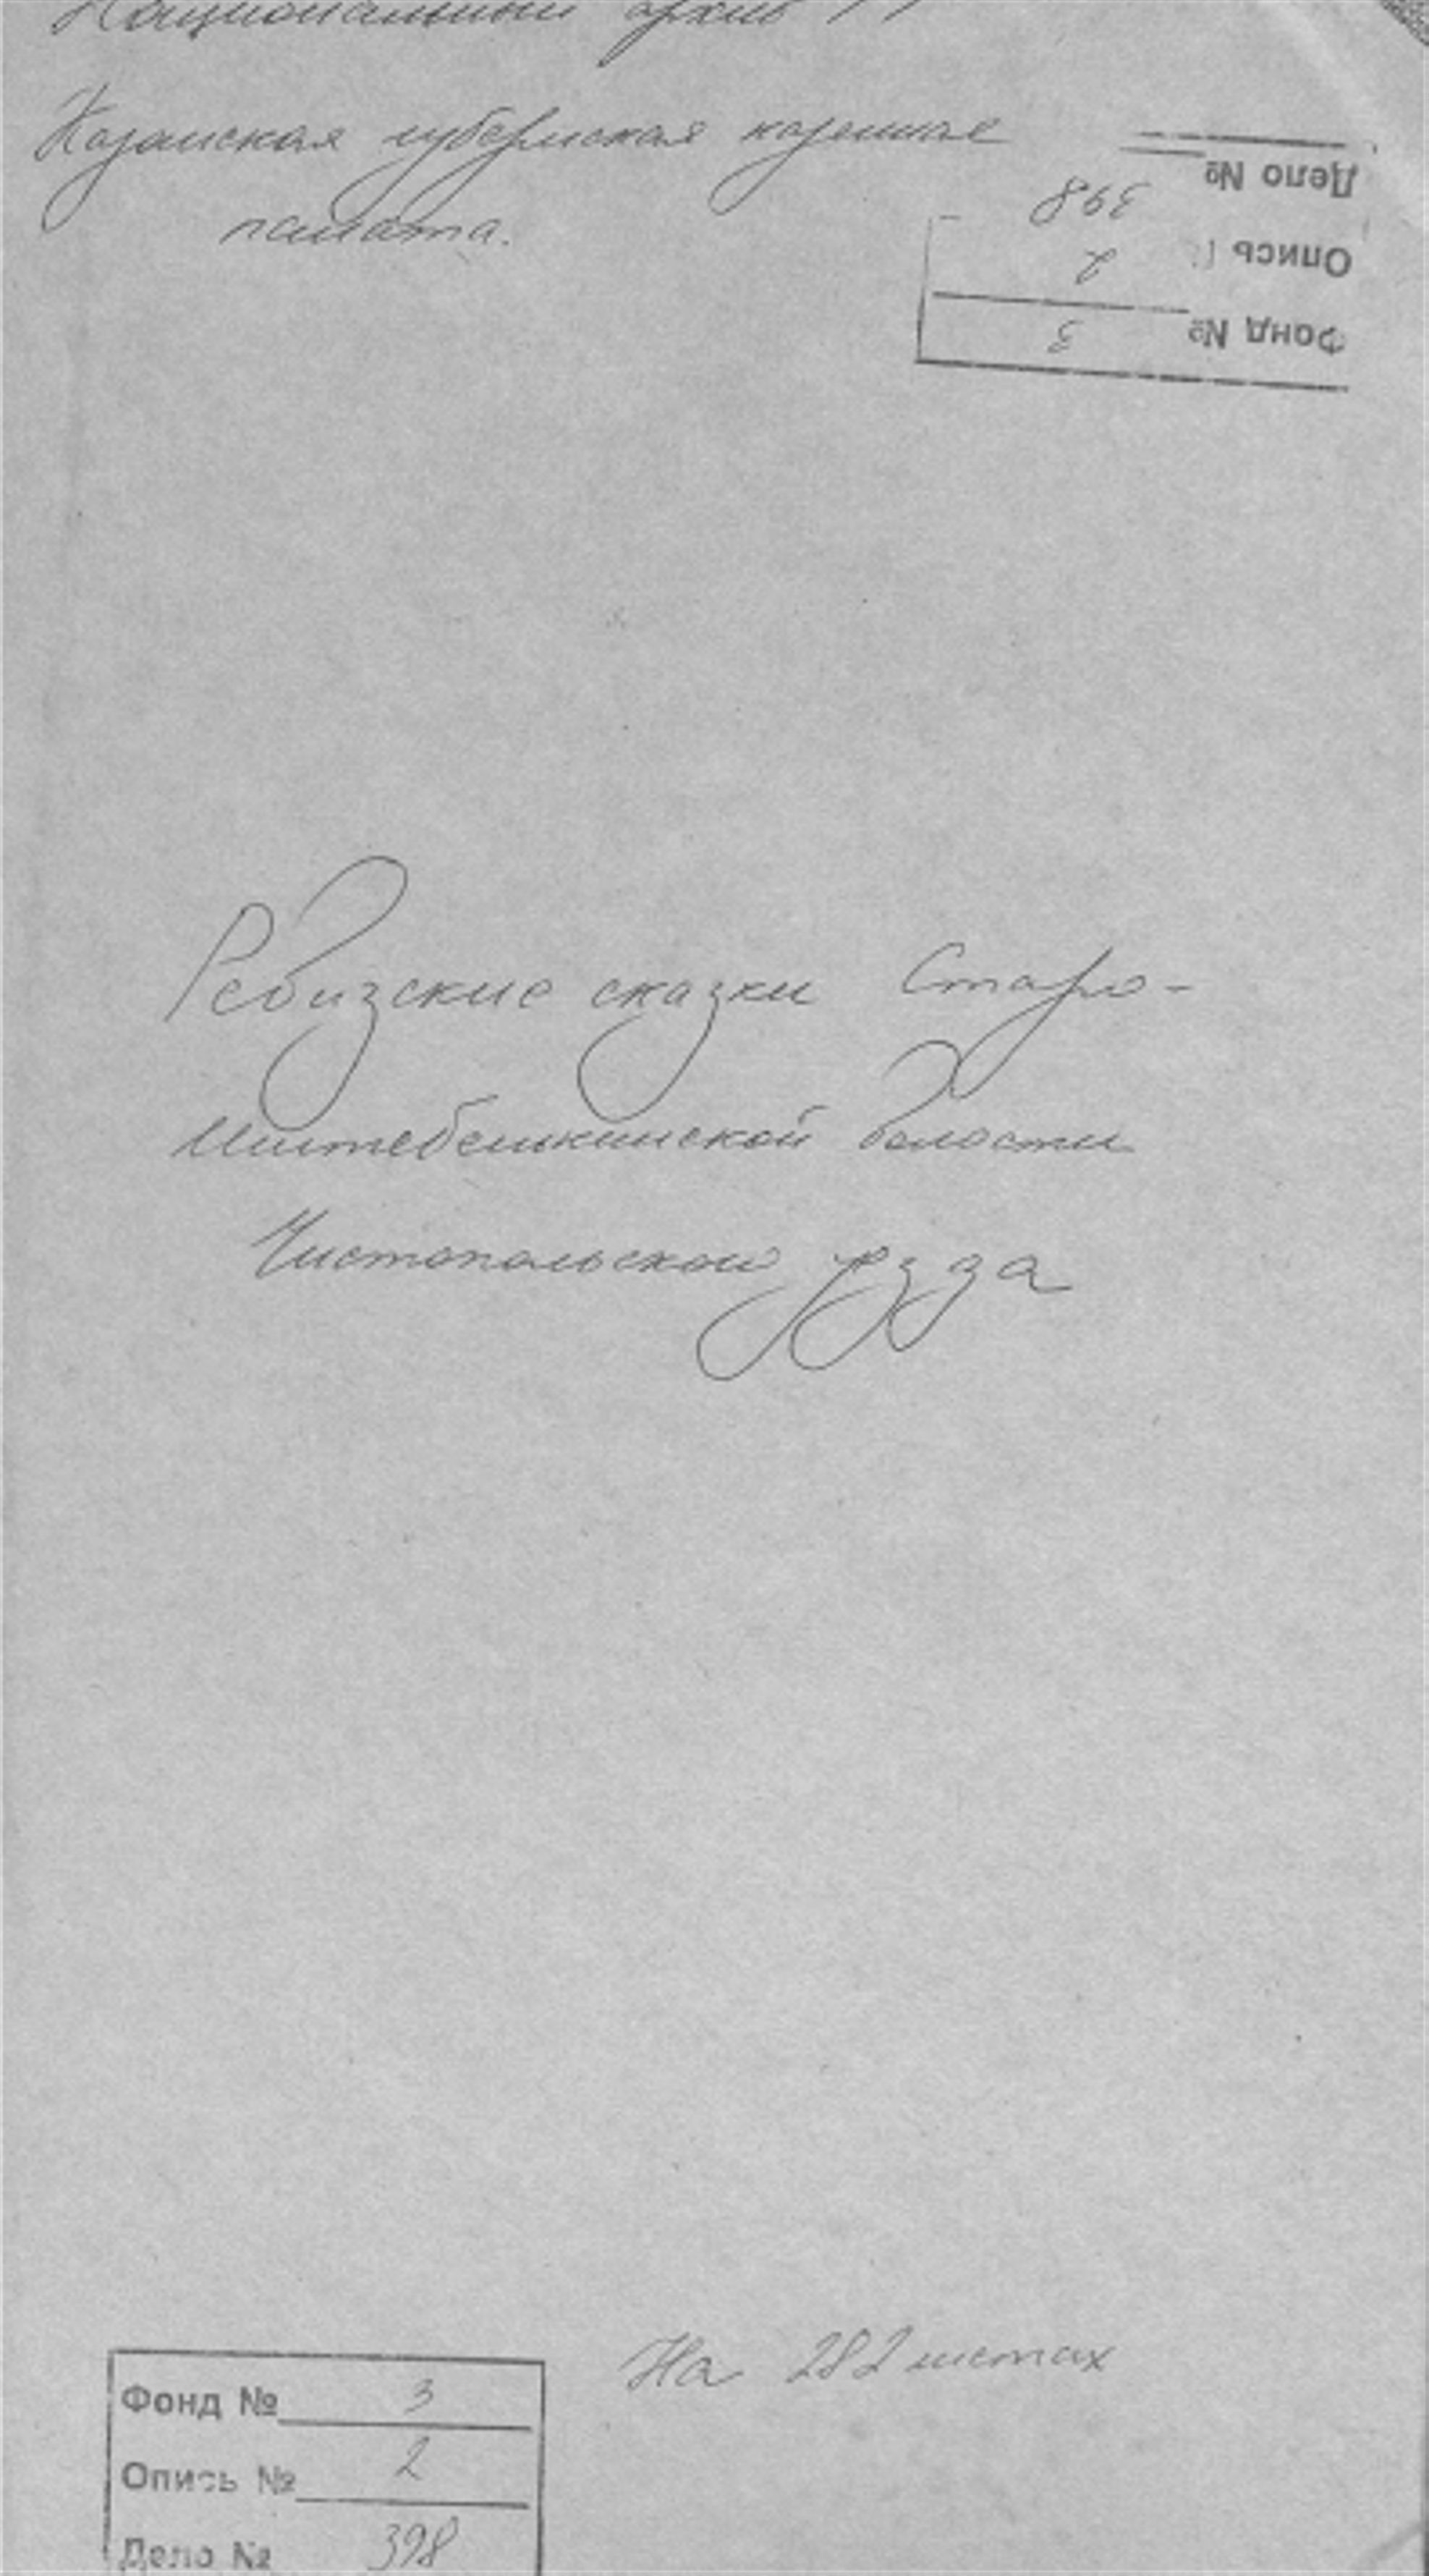 Национальный архив РТ
Казанская губернская казенная
палата.
Дело № 398
Опись 2
Фонд № 3
Ревизские сказки Старо-
Иштебенькинской волости
Чистопольской уезда
На 282 листах
Фонд № 3
Опись № 2
Дело № 398